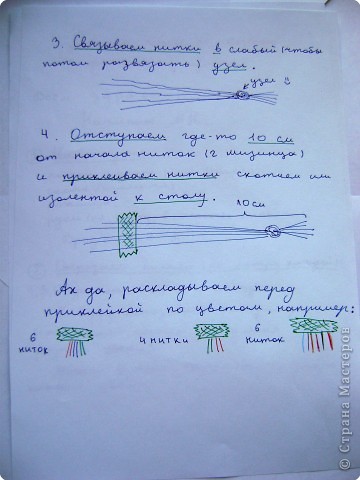 3. Связываем нитки в слабый (чтобы
потом развязать) узел.
узел
4. Отступаем где-то 10 см
от начала ниток (2 мизинца)
и приклеиваем нитки скотчем или
изолентой к столу.
10 см
Ах да, раскладываем перед
приклейкой по цветам, например:
6 ниток
4 нитки
6 ниток
© Страна Мастеров